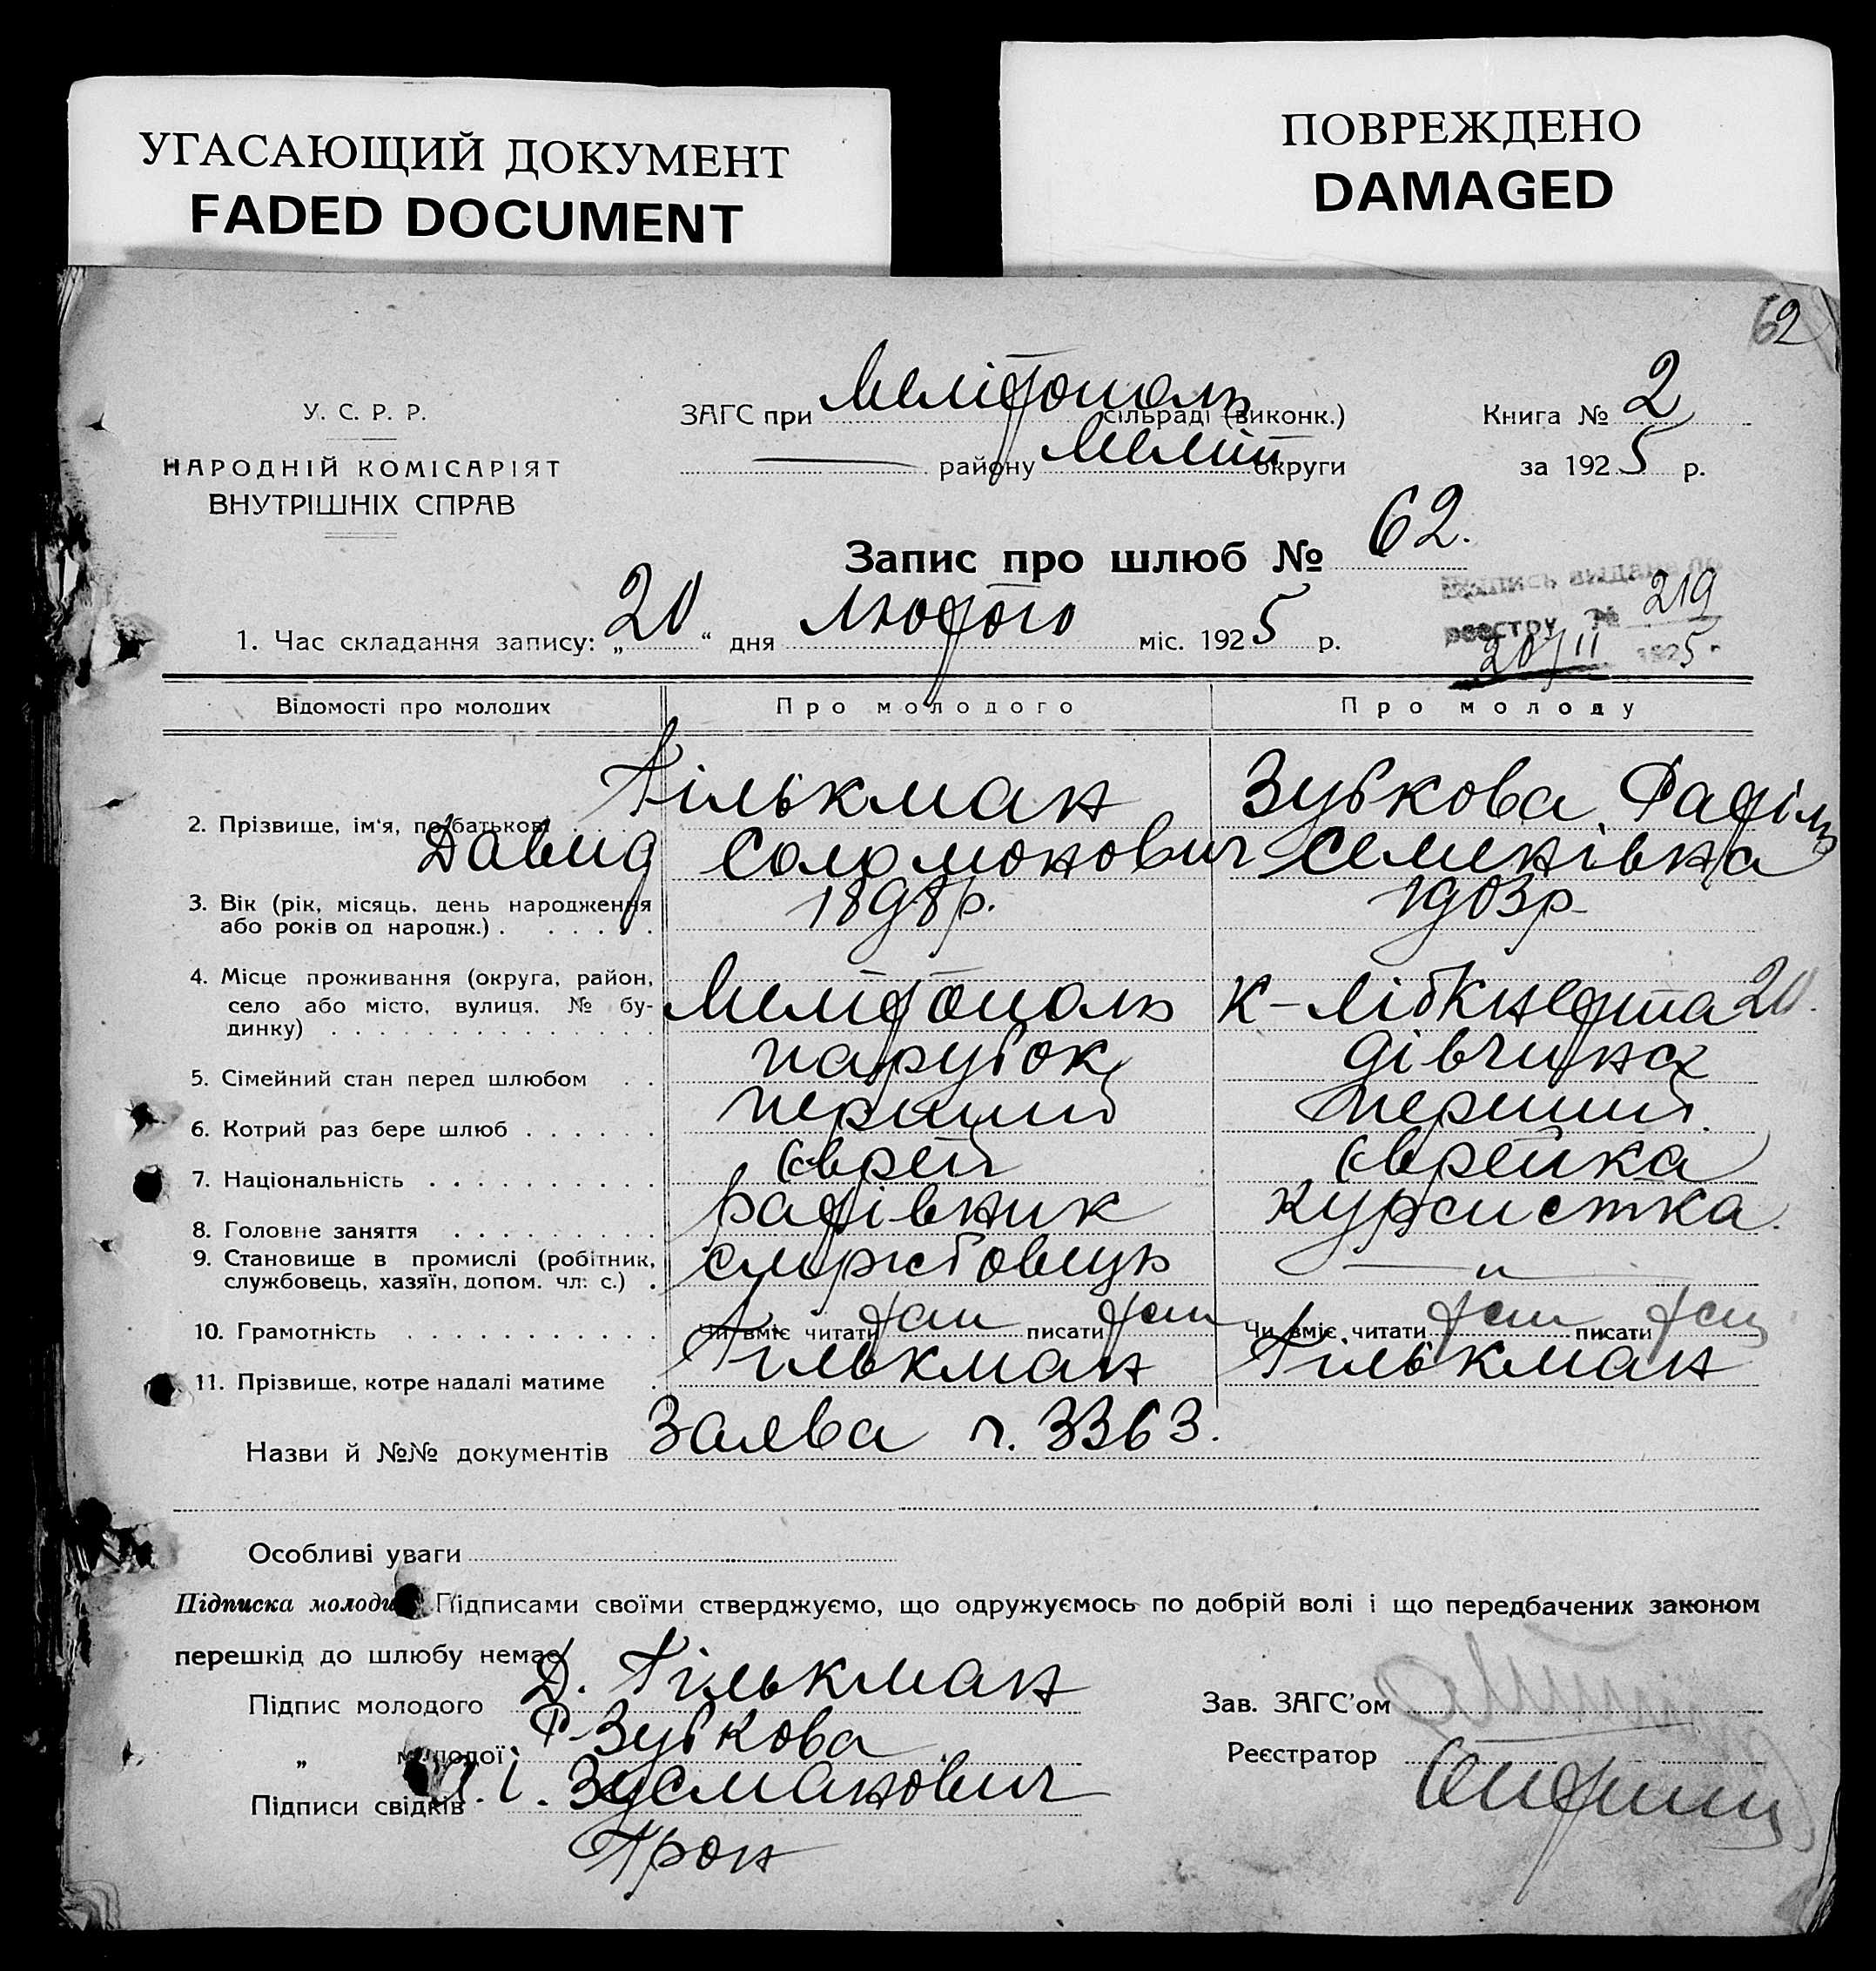 УГАСАЮЩИЙ ДОКУМЕНТ
FADED DOCUMENT
ПОВРЕЖДЕНО
DAMAGED
62
У. С. Р. Р.
НАРОДНІЙ КОМІСАРІЯТ
ВНУТРІШНІХ СПРАВ
ЗАГС при Мелітополь сільраді (виконк.)
району Меліт округи
Книга № 2
за 1925 р.
Запис про шлюб № 62.
выдана по
реестру № 219
20/II 1925 г
1. Час складання запису: „20“ дня Лютого міс. 1925 р.
Відомості про молодих Про молодого Про молоду
Гількман Зубкова Рафіль
2. Прізвище, ім'я, по батькові
Давид Соломонович Семенівна
3. Вік (рік, місяць, день народження 1898р. 1903р
або років од народж.)
4. Місце проживання (округа, район,
село або місто, вулиця, № бу- Мелітополь К-Лібкнехта 20.
динку)
5. Сімейний стан перед шлюбом парубок дівчина
6. Котрий раз бере шлюб перший перший
7. Національність єврей єврейка
8. Головне заняття курсистка
9. Становище в промислі (робітник, службовець — " —
службовець, хазяїн, допом. чл. с.)
10. Грамотність Чи вміє читати писати Чи вміє читати писати
11. Прізвище, котре надалі матиме Гількман Гількман
Назви й №№ документів Заява ч. 3363.
Особливі уваги
Підписка молодих Підписами своїми стверджуємо, що одружуємось по добрій волі і що передбачених законом
перешкід до шлюбу немає
Підпис молодого Д. Гількман
„ молодої Р Зубкова
Підписи свідків І. Зусманович
Трон
Зав. ЗАГС'ом
Реєстратор